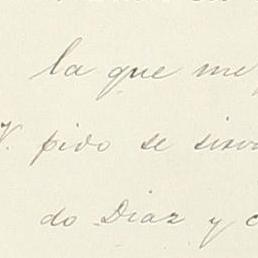 la que me
V. pido se sirva
do Diaz y